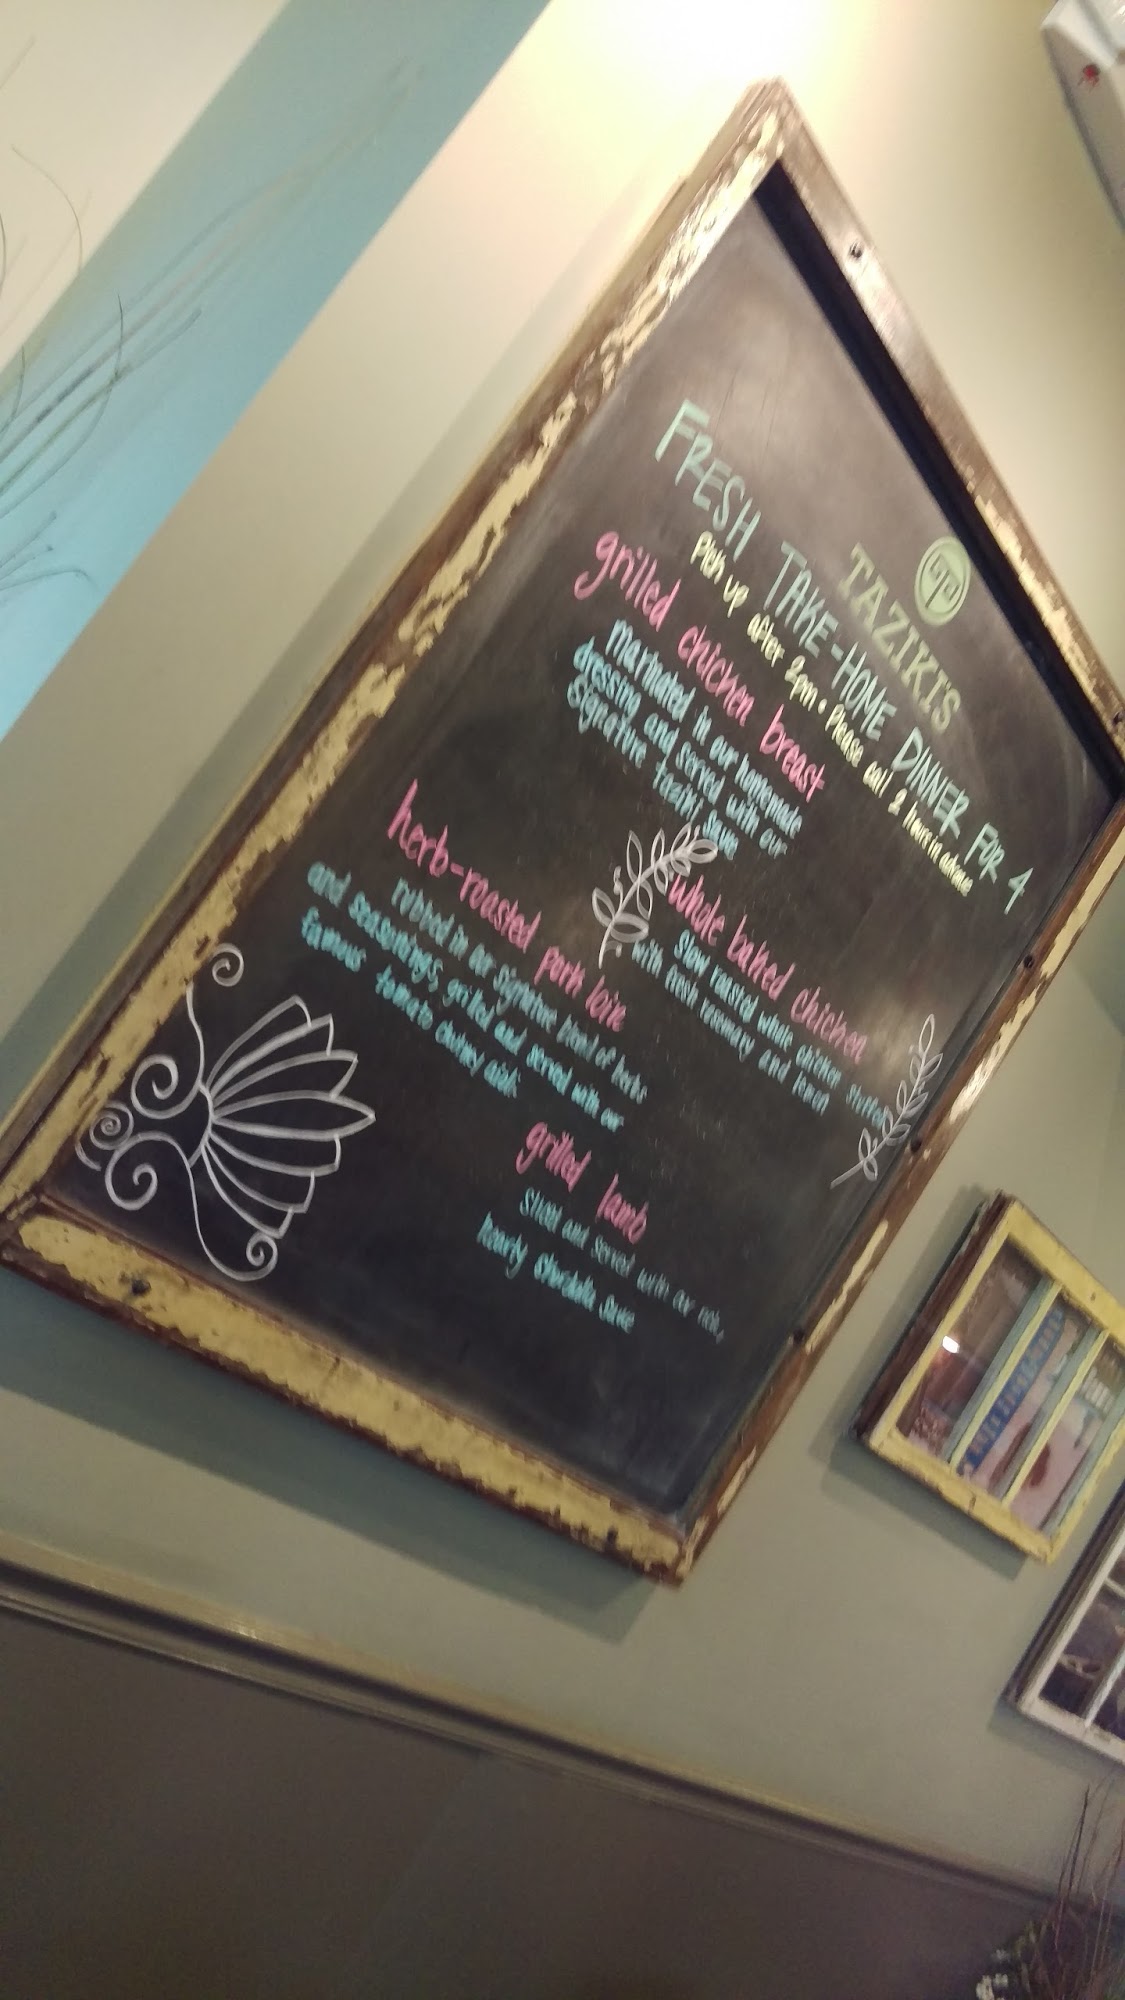 TAZIKI'S
FRESH TAKE-HOME DINNER FOR 4
Pick up after 2pm • Please call 2 hours in advance
grilled chicken breast
marinated in our homemade
dressing and served with our
Signature taziki Sauce
whole baked chicken
Slow roasted whole chicken stuffed
with fresh rosemary and lemon
herb-roasted pork loin
rubbed in our signature blend of herbs
and seasonings, grilled and served with our
famous tomato chutney aioli
grilled lamb
Sliced and served with our rich,
hearty Sauce